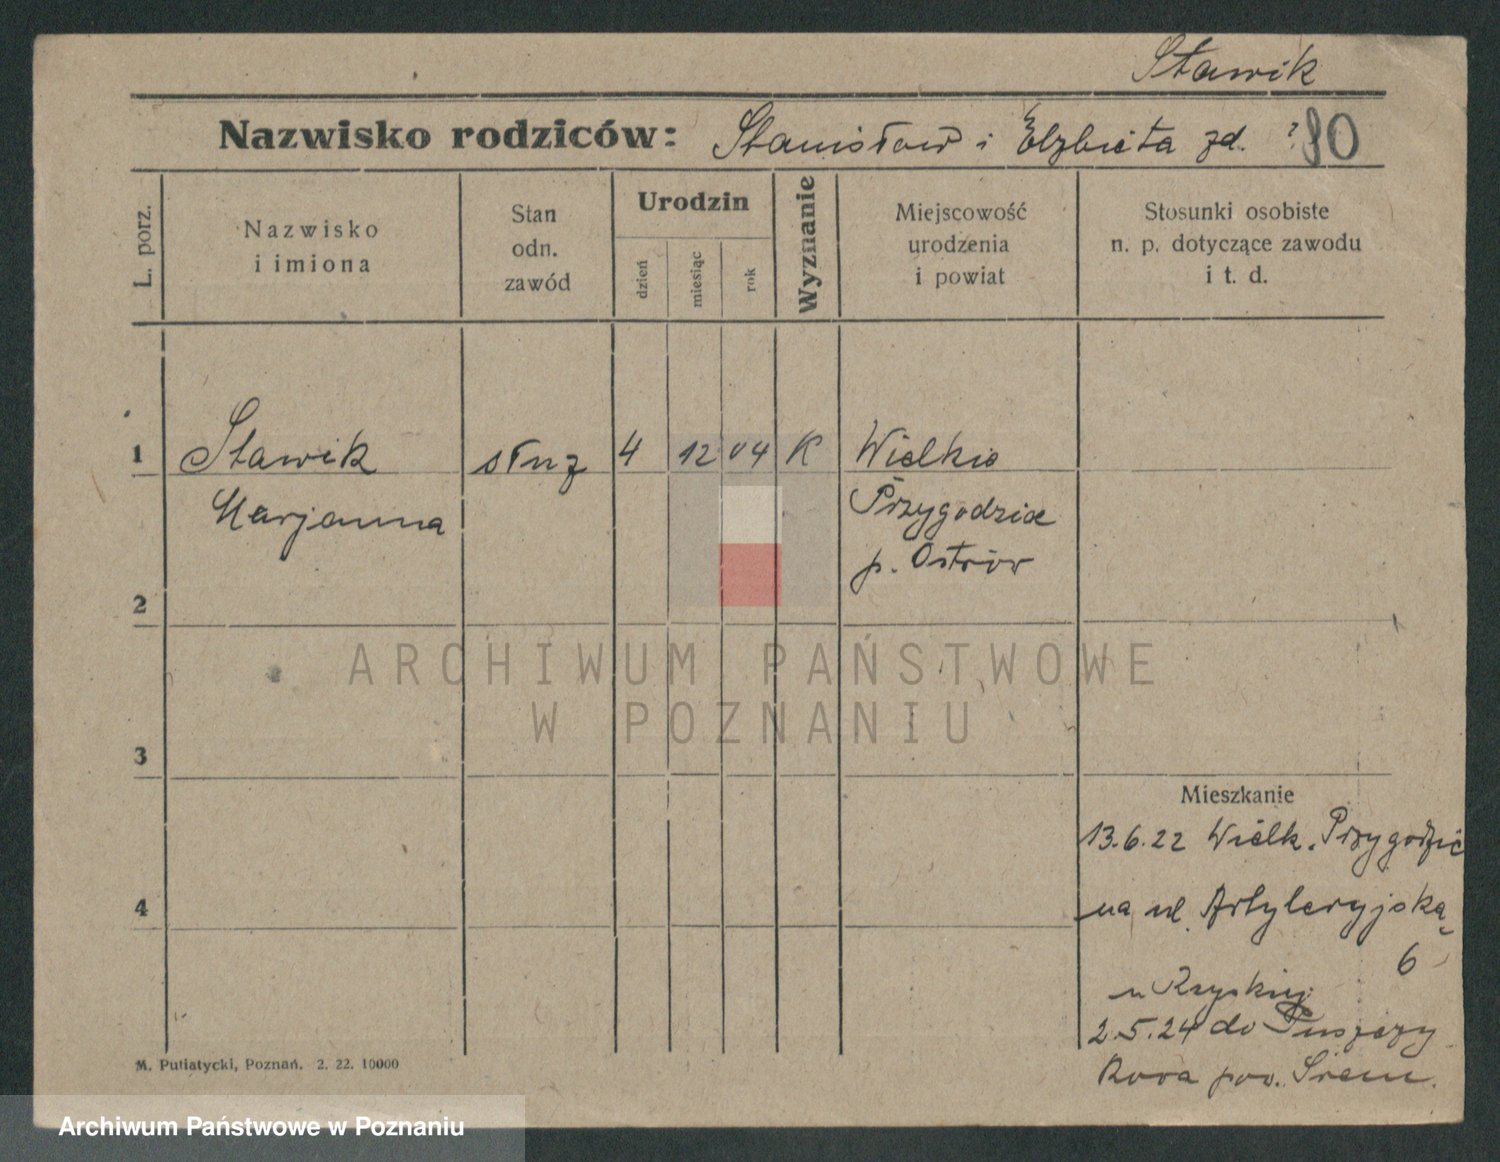 Stawik
Nazwisko rodziców: Stanisław i Elżbieta zd. ? 90
L. porz.
Nazwisko
i imiona
Stan
odn.
zawód
Urodzin
dzień
miesiąc
rok
Wyznanie
Miejscowość
urodzenia
i powiat
Stosunki osobiste
n. p. dotyczące zawodu
i t. d.
1 Stawik służ 4 12 04 K Wielkie
Marjanna Przygodzice
p. Ostrów
2
ARCHIWUM PAŃSTWOWE
W POZNANIU
3
Mieszkanie
13.6.22 Wielk. Przygodzic
4
na ul. Artyleryjską
6
u
2.5.24 do Puszczy
pow. Śrem.
M. Putiatycki, Poznań. 2. 22. 10000
Archiwum Państwowe w Poznaniu